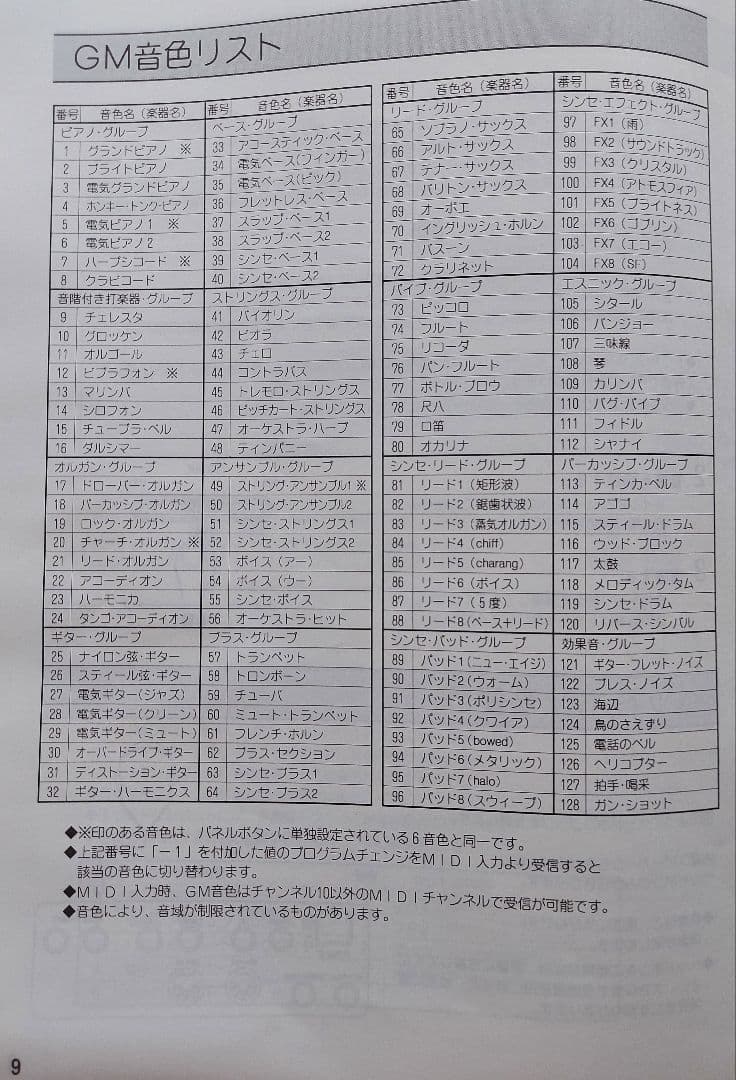 GM音色リスト
番号 音色名（楽器名）
ピアノ・グループ
1 グランドピアノ ※
2 ブライトピアノ
3 電気グランドピアノ
4 ホンキー・トンク・ピアノ
5 電気ピアノ1 ※
6 電気ピアノ2
7 ハープシコード ※
8 クラビコード
音階付き打楽器・グループ
9 チェレスタ
10 グロッケン
11 オルゴール
12 ビブラフォン ※
13 マリンバ
14 シロフォン
15 チューブラ・ベル
16 ダルシマー
オルガン・グループ
17 ドローバー・オルガン
18 パーカッシブ・オルガン
19 ロック・オルガン
20 チャーチ・オルガン ※
21 リード・オルガン
22 アコーディオン
23 ハーモニカ
24 タンゴ・アコーディオン
ギター・グループ
25 ナイロン弦・ギター
26 スティール弦・ギター
27 電気ギター（ジャズ）
28 電気ギター（クリーン）
29 電気ギター（ミュート）
30 オーバードライブ・ギター
31 ディストーション・ギター
32 ギター・ハーモニクス
番号 音色名（楽器名）
ベース・グループ
33 アコースティック・ベース
34 電気ベース（フィンガー）
35 電気ベース（ピック）
36 フレットレス・ベース
37 スラップ・ベース1
38 スラップ・ベース2
39 シンセ・ベース1
40 シンセ・ベース2
ストリングス・グループ
41 バイオリン
42 ビオラ
43 チェロ
44 コントラバス
45 トレモロ・ストリングス
46 ピッチカート・ストリングス
47 オーケストラ・ハープ
48 ティンパニー
アンサンブル・グループ
49 ストリング・アンサンブル1 ※
50 ストリング・アンサンブル2
51 シンセ・ストリングス1
52 シンセ・ストリングス2
53 ボイス（アー）
54 ボイス（ウー）
55 シンセ・ボイス
56 オーケストラ・ヒット
ブラス・グループ
57 トランペット
58 トロンボーン
59 チューバ
60 ミュート・トランペット
61 フレンチ・ホルン
62 ブラス・セクション
63 シンセ・ブラス1
64 シンセ・ブラス2
番号 音色名（楽器名）
リード・グループ
65 ソプラノ・サックス
66 アルト・サックス
67 テナー・サックス
68 バリトン・サックス
69 オーボエ
70 イングリッシュ・ホルン
71 バスーン
72 クラリネット
パイプ・グループ
73 ピッコロ
74 フルート
75 リコーダ
76 パン・フルート
77 ボトル・ブロウ
78 尺八
79 口笛
80 オカリナ
シンセ・リード・グループ
81 リード1（矩形波）
82 リード2（鋸歯状波）
83 リード3（蒸気オルガン）
84 リード4（chiff）
85 リード5（charang）
86 リード6（ボイス）
87 リード7（5度）
88 リード8（ベース+リード）
シンセ・パッド・グループ
89 パッド1（ニュー・エイジ）
90 パッド2（ウォーム）
91 パッド3（ポリシンセ）
92 パッド4（クワイア）
93 パッド5（bowed）
94 パッド6（メタリック）
95 パッド7（halo）
96 パッド8（スウィープ）
番号 音色名（楽器名）
シンセ・エフェクト・グループ
97 FX1（雨）
98 FX2（サウンドトラック）
99 FX3（クリスタル）
100 FX4（アトモスフィア）
101 FX5（ブライトネス）
102 FX6（ゴブリン）
103 FX7（エコー）
104 FX8（SF）
エスニック・グループ
105 シタール
106 バンジョー
107 三味線
108 琴
109 カリンバ
110 バグ・パイプ
111 フィドル
112 シャナイ
パーカッシブ・グループ
113 ティンカ・ベル
114 アゴゴ
115 スティール・ドラム
116 ウッド・ブロック
117 太鼓
118 メロディック・タム
119 シンセ・ドラム
120 リバース・シンバル
効果音・グループ
121 ギター・フレット・ノイズ
122 ブレス・ノイズ
123 海辺
124 鳥のさえずり
125 電話のベル
126 ヘリコプター
127 拍手・喝采
128 ガン・ショット
◆※印のある音色は、パネルボタンに単独設定されている6音色と同一です。
◆上記番号に「－1」を付加した値のプログラムチェンジをMIDI入力より受信すると
該当の音色に切り替わります。
◆MIDI入力時、GM音色はチャンネル10以外のMIDIチャンネルで受信が可能です。
◆音色により、音域が制限されているものがあります。
9